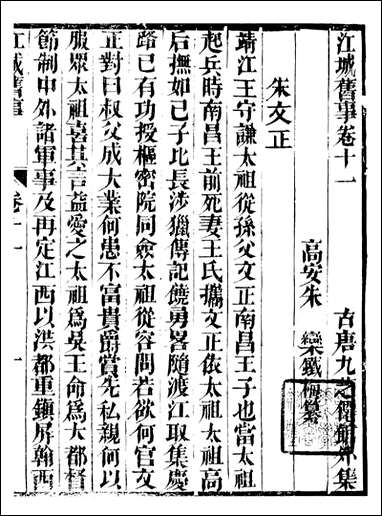 江城舊事卷十一
古唐九芝僊館外集
高安朱欒鐵梅纂
朱文正
靖江王守謙太祖從孫父文正南昌王子也當太祖
起兵時南昌王前死妻王氏攜文正依太祖太祖高
后撫如己子比長涉獵傳記饒勇畧隨渡江取集慶
路已有功授樞密院同僉太祖從容問若欲何官文
正對曰叔父成大業何患不富貴爵賞先私親何以
服眾太祖喜其言益愛之太祖為吳王命為大都督
節制中外諸軍事及再定江西以洪都重鎮屏翰西
江城舊事
卷十一
一